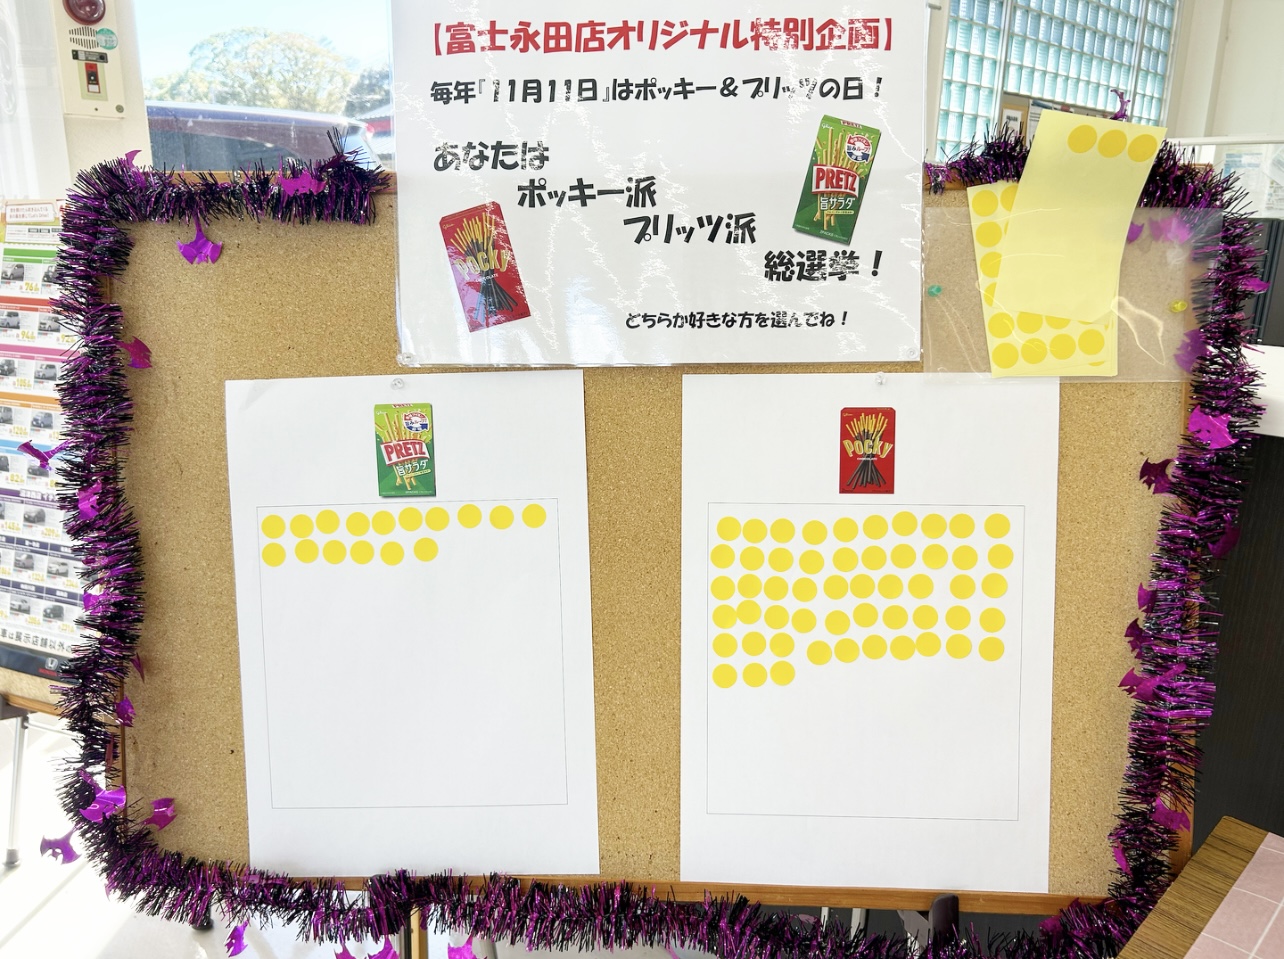 【富士永田店オリジナル特別企画】
毎年『11月11日』はポッキー＆プリッツの日！
あなたは
ポッキー派
プリッツ派
総選挙！
どちらか好きな方を選んでね！
PRETZ
旨サラダ
POCKY
PRETZ
旨サラダ
POCKY